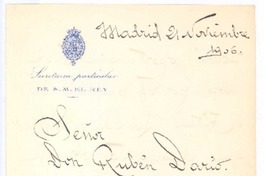 Madrid 21 Noviembre
1906.
Secretaría particular
DE S. M. EL REY
Señor
Don Rubén Darío.